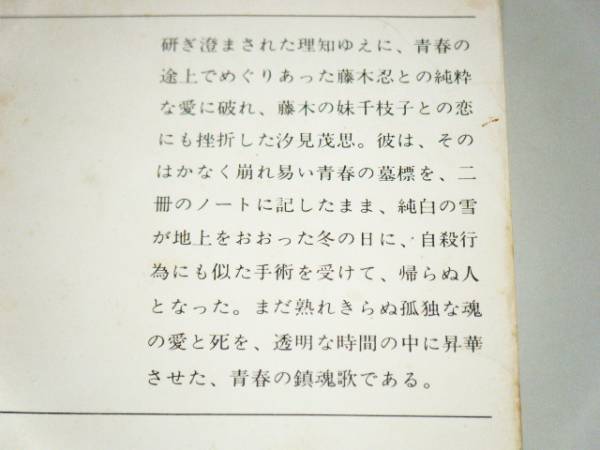 研ぎ澄まされた理知ゆえに、青春の
途上でめぐりあった藤木忍との純粋
な愛に破れ、藤木の妹千枝子との恋
にも挫折した汐見茂思。彼は、その
はかなく崩れ易い青春の墓標を、二
冊のノートに記したまま、純白の雪
が地上をおおった冬の日に、自殺行
為にも似た手術を受けて、帰らぬ人
となった。まだ熟れきらぬ孤独な魂
の愛と死を、透明な時間の中に昇華
させた、青春の鎮魂歌である。